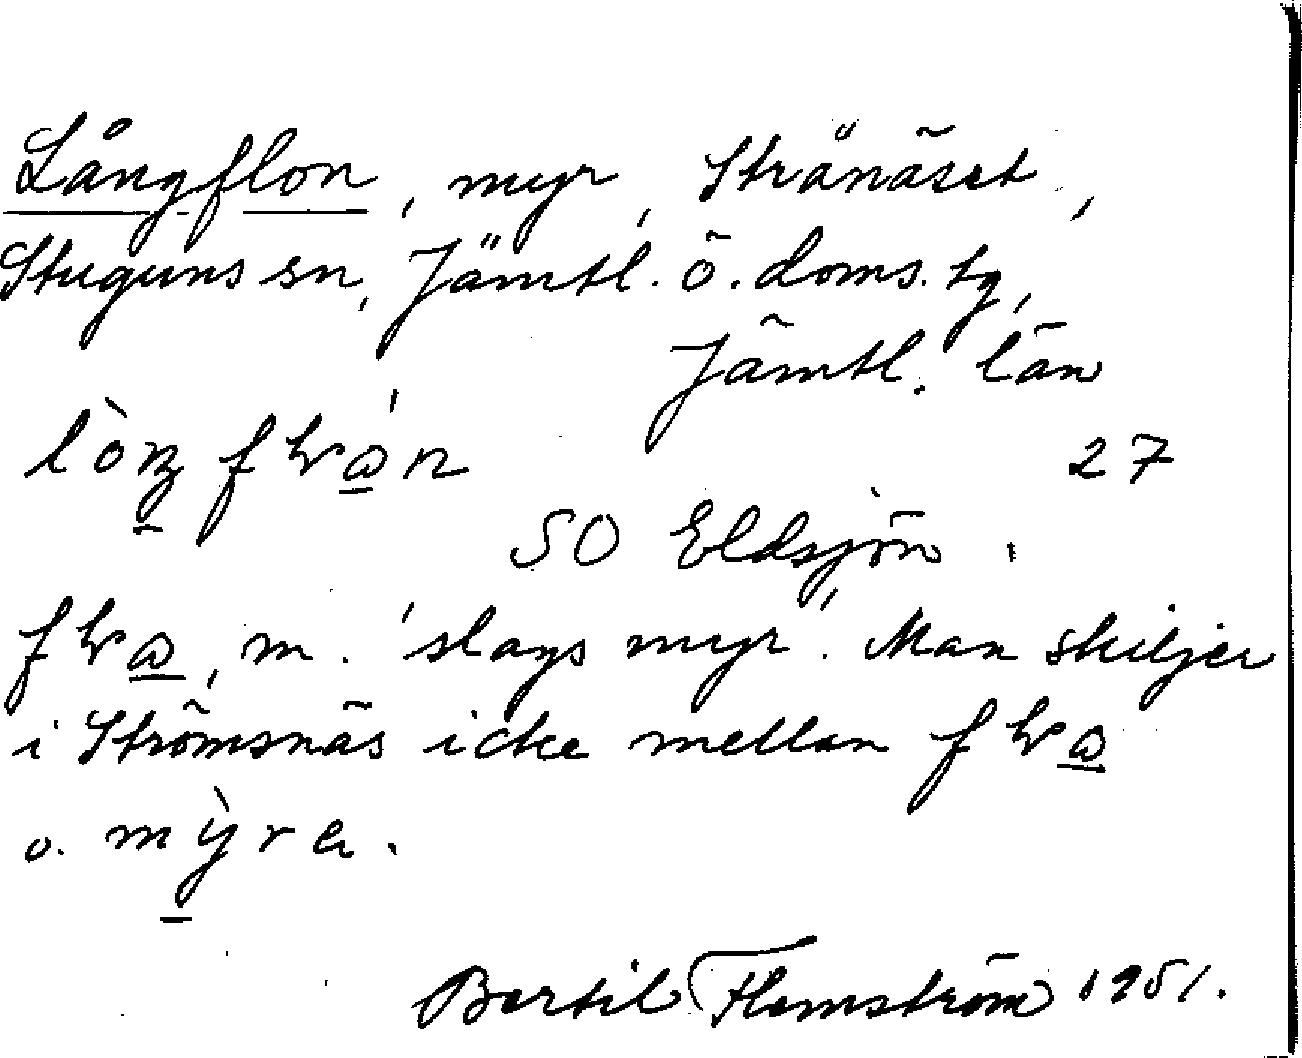 Långflon, myr, Stränäset,
Stuguns sn, Jämtl. ö. doms. tg,
Jämtl. län
27
SO Eldsjön.
m. 'slags myr'. Man skiljer
i Strömsnäs icke mellan
o. mỳra.
Bertil Flemström 1951.